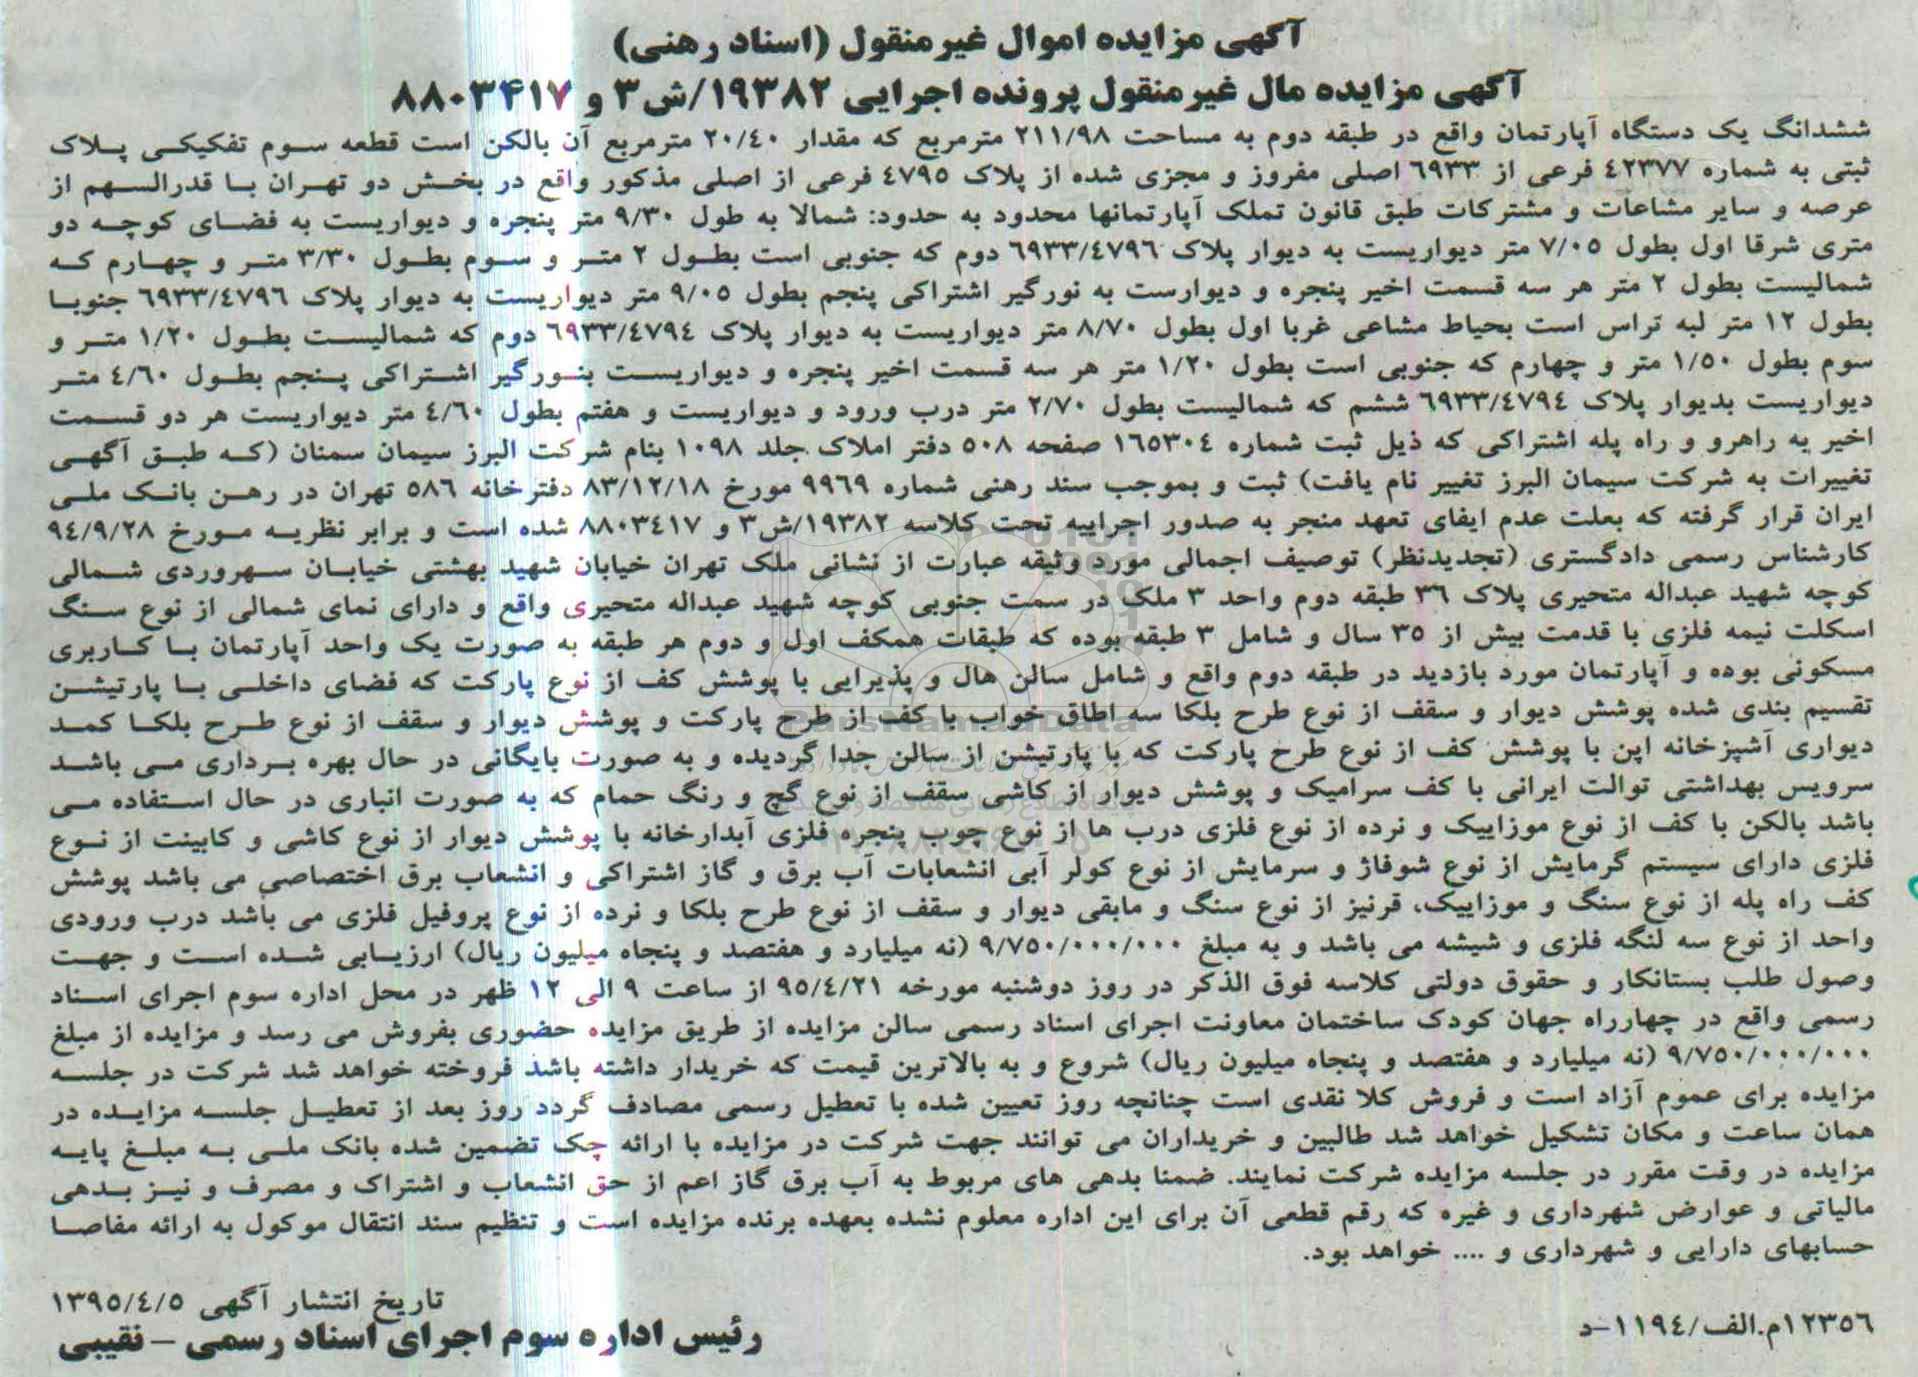 آگهی مزایده اموال غیرمنقول (اسناد رهنی)
آگهی مزایده مال غیرمنقول پرونده اجرایی ۱۹۳۸۲/ش۳ و ۸۸۰۳۴۱۷
ششدانگ یک دستگاه آپارتمان واقع در طبقه دوم به مساحت ۲۱۱/۹۸ مترمربع که مقدار ۲۰/٤۰ مترمربع آن بالکن است قطعه سوم تفکیکی پلاک
ثبتی به شماره ٤۲۳۷۷ فرعی از ٦۹۳۳ اصلی مفروز و مجزی شده از پلاک ٤۷۹٥ فرعی از اصلی مذکور واقع در بخش دو تهران با قدرالسهم از
عرصه و سایر مشاعات و مشترکات طبق قانون تملک آپارتمانها محدود به حدود: شمالا به طول ۹/۳۰ متر پنجره و دیواریست به فضای کوچه دو
متری شرقا اول بطول ۷/۰٥ متر دیواریست به دیوار پلاک ٦۹۳۳/٤۷۹٦ دوم که جنوبی است بطول ۲ متر و سوم بطول ۳/۳۰ متر و چهارم که
شمالیست بطول ۲ متر هر سه قسمت اخیر پنجره و دیوارست به نورگیر اشتراکی پنجم بطول ۹/۰٥ متر دیواریست به دیوار پلاک ٦۹۳۳/٤۷۹٦ جنوبا
بطول ۱۲ متر لبه تراس است بحیاط مشاعی غربا اول بطول ۸/۷۰ متر دیواریست به دیوار پلاک ٦۹۳۳/٤۷۹٤ دوم که شمالیست بطول ۱/۲۰ متر و
سوم بطول ۱/٥۰ متر و چهارم که جنوبی است بطول ۱/۲۰ متر هر سه قسمت اخیر پنجره و دیواریست بنورگیر اشتراکی پنجم بطول ٤/٦۰ متر
دیواریست بدیوار پلاک ٦۹۳۳/٤۷۹٤ ششم که شمالیست بطول ۲/۷۰ متر درب ورود و دیواریست و هفتم بطول ٤/٦۰ متر دیواریست هر دو قسمت
اخیر یه راهرو و راه پله اشتراکی که ذیل ثبت شماره ۱٦٥۳۰٤ صفحه ٥۰۸ دفتر املاک جلد ۱۰۹۸ بنام شرکت البرز سیمان سمنان (که طبق آگهی
تغییرات به شرکت سیمان البرز تغییر نام یافت) ثبت و بموجب سند رهنی شماره ۹۹٦۹ مورخ ۸۳/۱۲/۱۸ دفترخانه ٥۸٦ تهران در رهن بانک ملی
ایران قرار گرفته که بعلت عدم ایفای تعهد منجر به صدور اجراییه تحت کلاسه ۱۹۳۸۲/ش۳ و ۸۸۰۳٤۱۷ شده است و برابر نظریه مورخ ۹٤/۹/۲۸
کارشناس رسمی دادگستری (تجدیدنظر) توصیف اجمالی مورد وثیقه عبارت از نشانی ملک تهران خیابان شهید بهشتی خیابان سهروردی شمالی
کوچه شهید عبداله متحیری پلاک ۳٦ طبقه دوم واحد ۳ ملک در سمت جنوبی کوچه شهید عبداله متحیری واقع و دارای نمای شمالی از نوع سنگ
اسکلت نیمه فلزی با قدمت بیش از ۳٥ سال و شامل ۳ طبقه بوده که طبقات همکف اول و دوم هر طبقه به صورت یک واحد آپارتمان با کاربری
مسکونی بوده و آپارتمان مورد بازدید در طبقه دوم واقع و شامل سالن هال و پذیرایی با پوشش کف از نوع پارکت که فضای داخلی با پارتیشن
تقسیم بندی شده پوشش دیوار و سقف از نوع طرح بلکا سه اطاق خواب با کف از طرح پارکت و پوشش دیوار و سقف از نوع طرح بلکا کمد
دیواری آشپزخانه اپن با پوشش کف از نوع طرح پارکت که با پارتیشن از سالن جدا گردیده و به صورت بایگانی در حال بهره برداری می باشد
سرویس بهداشتی توالت ایرانی با کف سرامیک و پوشش دیوار از کاشی سقف از نوع گچ و رنگ حمام که به صورت انباری در حال استفاده می
باشد بالکن با کف از نوع موزاییک و نرده از نوع فلزی درب ها از نوع چوب پنجره فلزی آبدارخانه با پوشش دیوار از نوع کاشی و کابینت از نوع
فلزی دارای سیستم گرمایش از نوع شوفاژ و سرمایش از نوع کولر آبی انشعابات آب برق و گاز اشتراکی و انشعاب برق اختصاصی می باشد پوشش
کف راه پله از نوع سنگ و موزاییک، قرنیز از نوع سنگ و مابقی دیوار و سقف از نوع طرح بلکا و نرده از نوع پروفیل فلزی می باشد درب ورودی
واحد از نوع سه لنگه فلزی و شیشه می باشد و به مبلغ ۹/۷٥۰/۰۰۰/۰۰۰ (نه میلیارد و هفتصد و پنجاه میلیون ریال) ارزیابی شده است و جهت
وصول طلب بستانکار و حقوق دولتی کلاسه فوق الذکر در روز دوشنبه مورخه ۹٥/٤/۲۱ از ساعت ۹ الی ۱۲ ظهر در محل اداره سوم اجرای اسناد
رسمی واقع در چهارراه جهان کودک ساختمان معاونت اجرای اسناد رسمی سالن مزایده از طریق مزایده حضوری بفروش می رسد و مزایده از مبلغ
۹/۷٥۰/۰۰۰/۰۰۰ (نه میلیارد و هفتصد و پنجاه میلیون ریال) شروع و به بالاترین قیمت که خریدار داشته باشد فروخته خواهد شد شرکت در جلسه
مزایده برای عموم آزاد است و فروش کلا نقدی است چنانچه روز تعیین شده با تعطیل رسمی مصادف گردد روز بعد از تعطیل جلسه مزایده در
همان ساعت و مکان تشکیل خواهد شد طالبین و خریداران می توانند جهت شرکت در مزایده با ارائه چک تضمین شده بانک ملی به مبلغ پایه
مزایده در وقت مقرر در جلسه مزایده شرکت نمایند. ضمنا بدهی های مربوط به آب برق گاز اعم از حق انشعاب و اشتراک و مصرف و نیز بدهی
مالیاتی و عوارض شهرداری و غیره که رقم قطعی آن برای این اداره معلوم نشده بعهده برنده مزایده است و تنظیم سند انتقال موکول به ارائه مفاصا
حسابهای دارایی و شهرداری و .... خواهد بود.
تاریخ انتشار آگهی ۱۳۹٥/٤/٥
۱۲۳٥٦م.الف/۱۱۹٤-د
رئیس اداره سوم اجرای اسناد رسمی - نقیبی
ParsNamadData